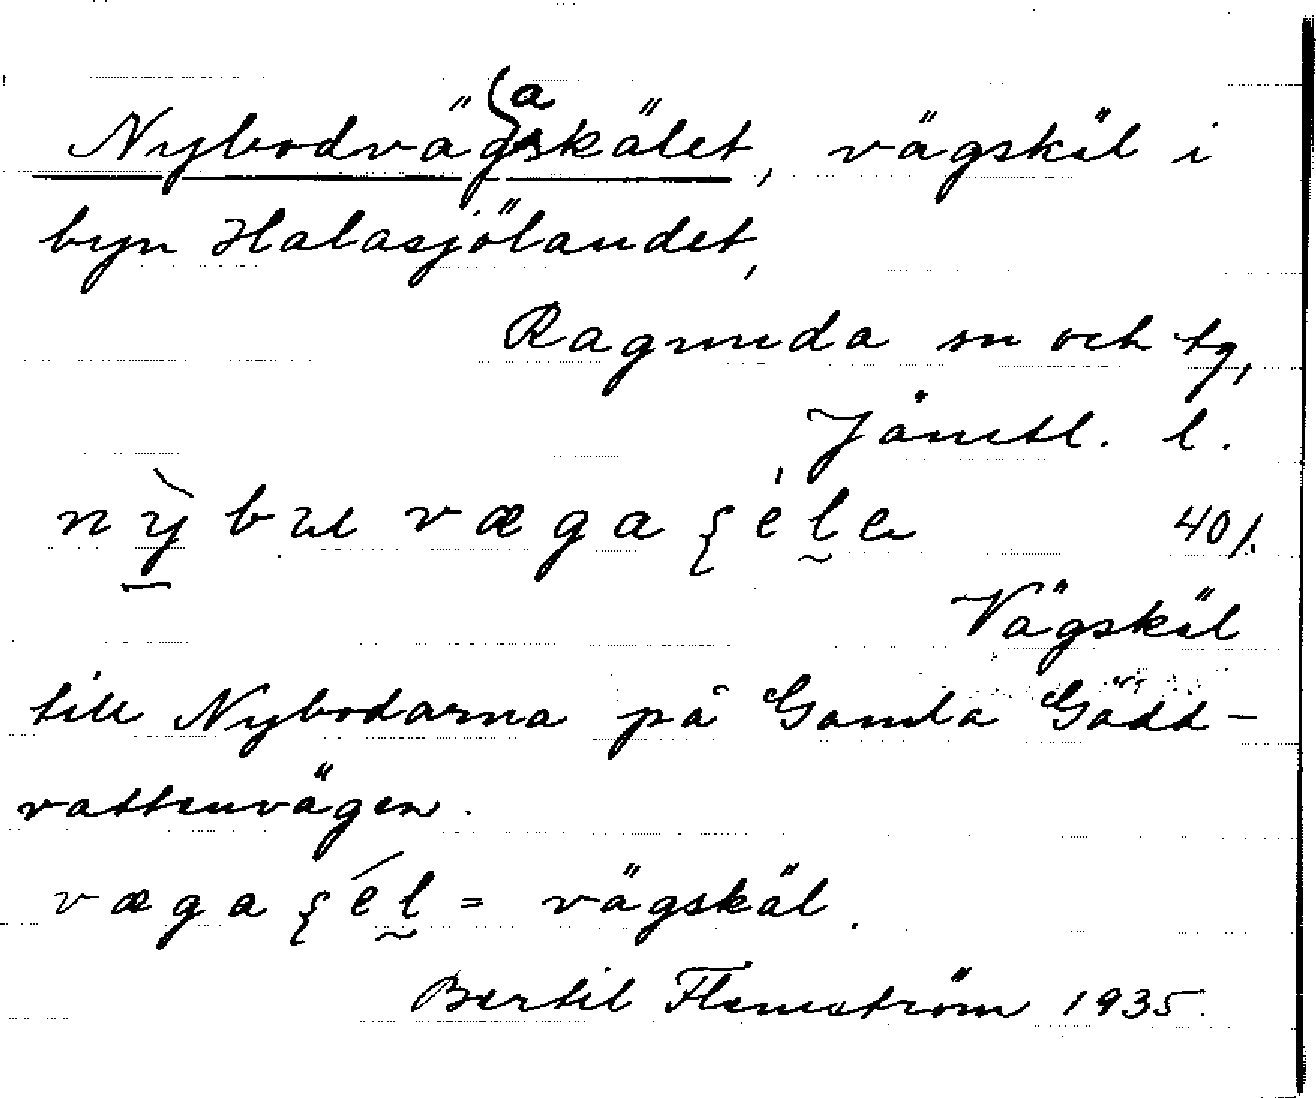 Nybodvägaskälet, vägskäl i
byn Halasjölandet,
Ragunda sn och tg,
Jämtl. l.
nỳbuɩ vægaʂéle 401.
Vägskäl
till Nybodarna på Gamla Gädd-
vattenvägen.
vægaʂél = vägskäl.
Bertil Flemström 1935.